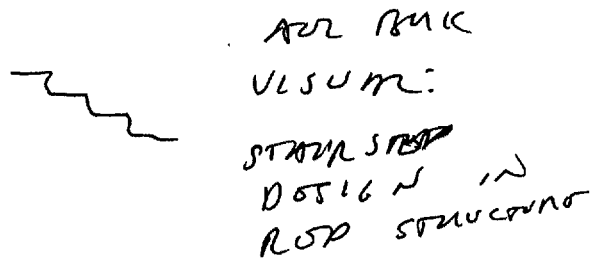 VISUAL:
STAIR STEP
DESIGN IN
ROD STRUCTURE